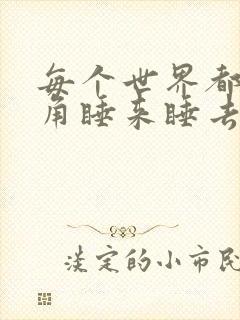 每个世界都
角睡来睡去
淡定的小市民